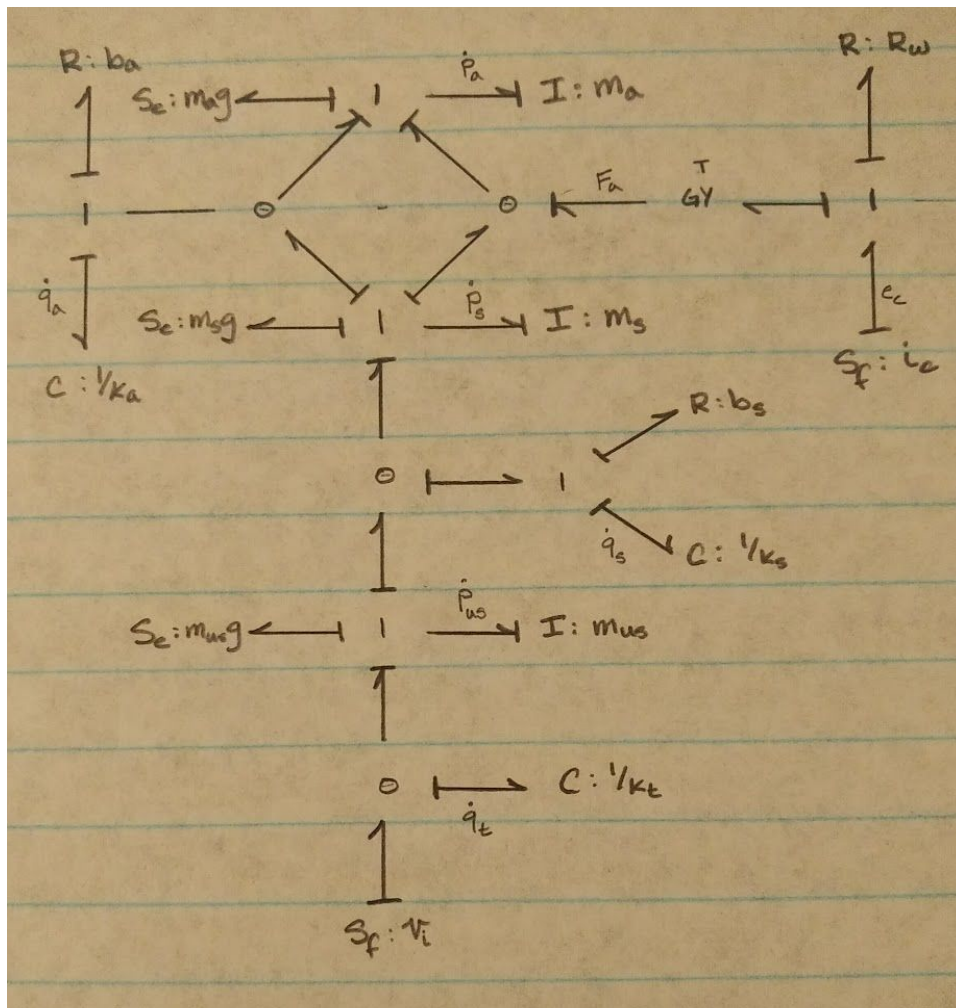 R: ba
R: Rw
Se: mag 1 ṗa I: ma
1 0 0 Fa T GY 1
q̇a
ec
Se: msg 1 ṗs I: ms
Sf: ic
C: 1/ka
R: bs
0 1
q̇s C: 1/ks
Se: musg 1 ṗus I: mus
0 q̇t C: 1/kt
Sf: vi